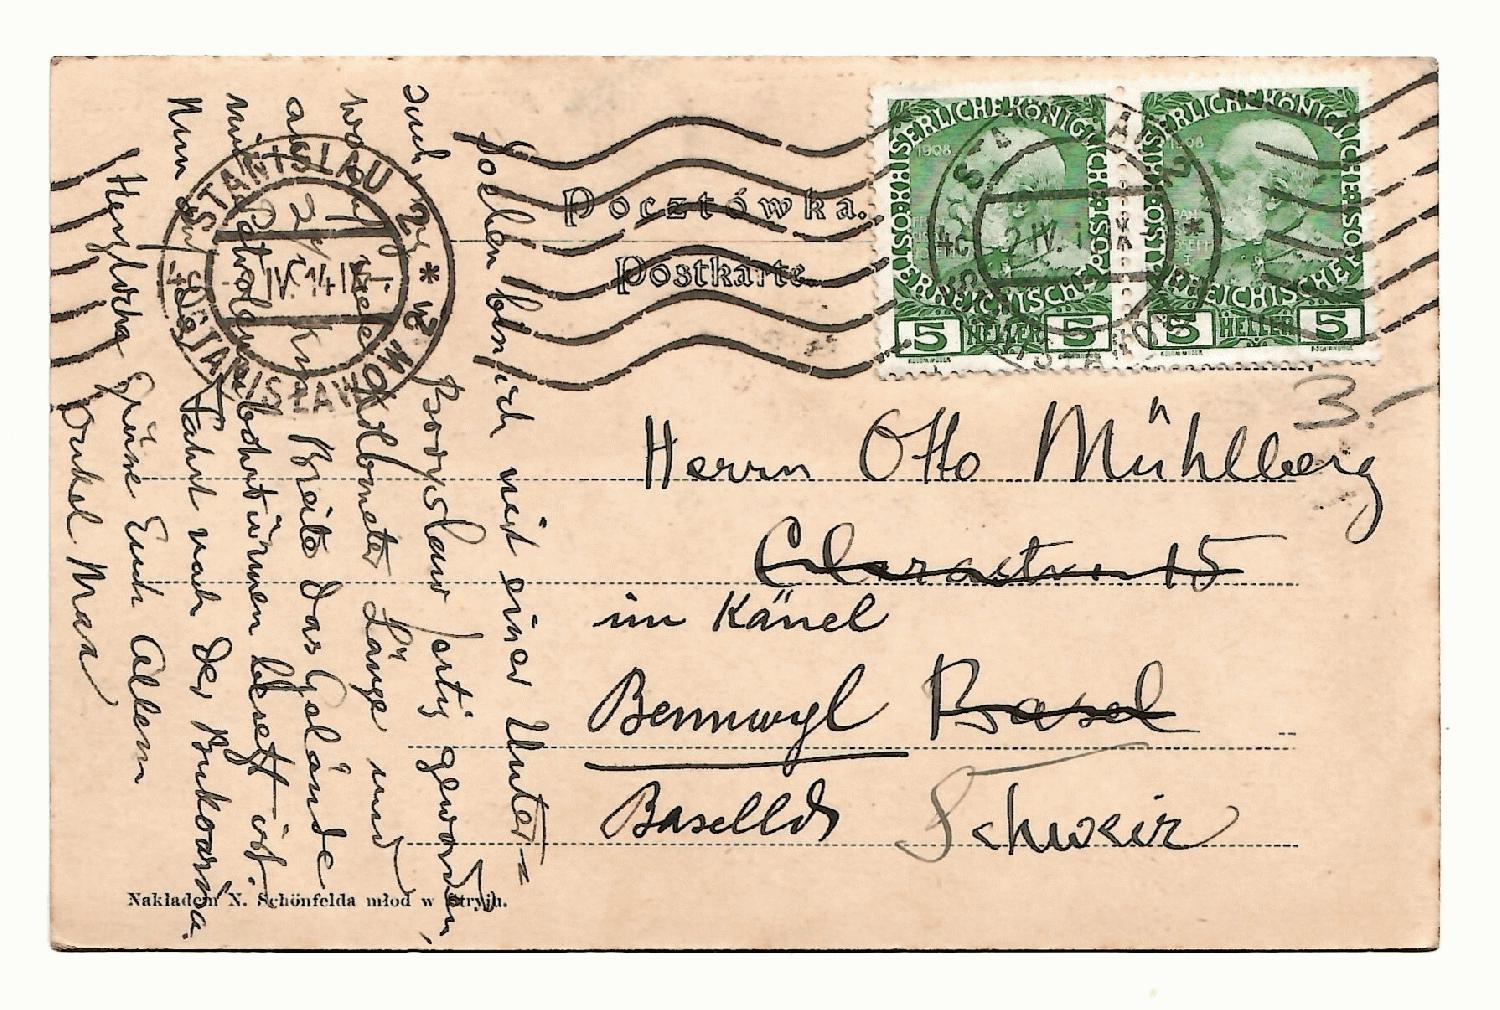 Pocztówka.
Postkarte
KAISERLICHE KÖNIGLICHE
ÖSTERREICHISCHE POST
1908
5 HELLER 5
KAISERLICHE KÖNIGLICHE
ÖSTERREICHISCHE POST
1908
5 HELLER 5
STANISLAU 2
STANISŁAWÓW 2
IV. 14
3.-
Herrn Otto Mühlberg
Clarastr 15
im Känel
Bennwyl Basel
Basellds
Schweiz
soeben bin ich mit einer Unter=
Boryslaw fertig geworden,
Kilometer Länge und
Breite das Gelände
mit Petroleumbohrtürmen besetzt ist.
Nun Fahrt nach der Bukowina.
Herzliche Grüsse Euch Allen
Onkel Max
Nakładem N. Schönfelda młod w Stryju.